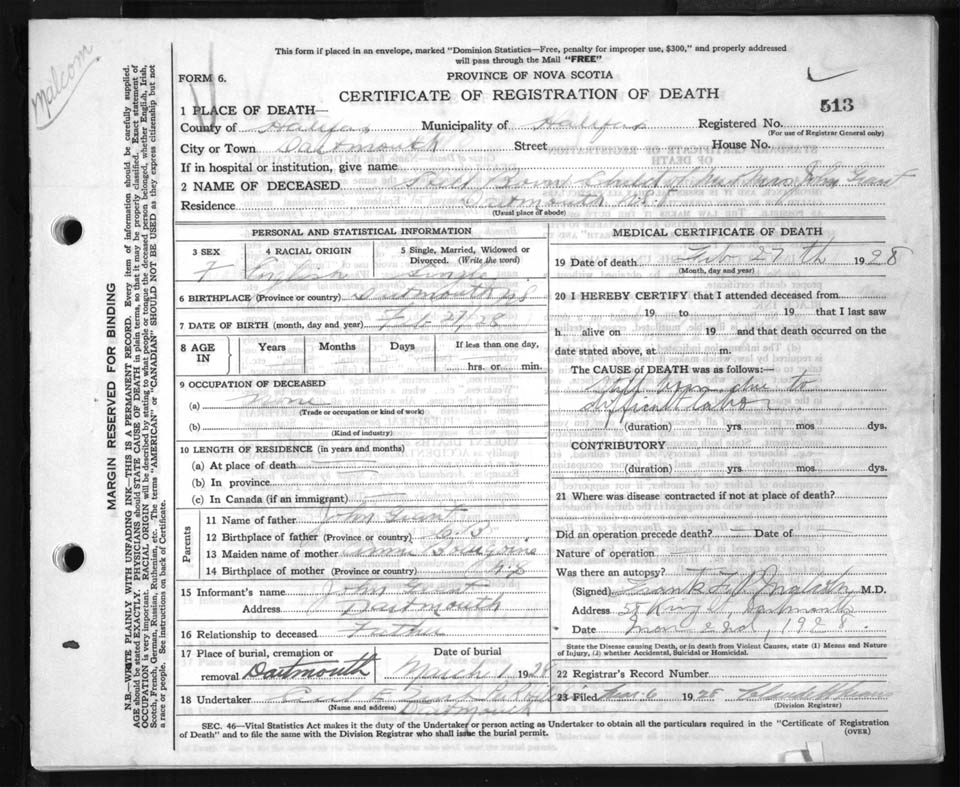 Malcom
This form if placed in an envelope, marked "Dominion Statistics—Free, penalty for improper use, $300," and properly addressed
will pass through the Mail "FREE"
FORM 6.
PROVINCE OF NOVA SCOTIA
CERTIFICATE OF REGISTRATION OF DEATH
513
1 PLACE OF DEATH—
County of Halifax Municipality of Halifax Registered No.
(For use of Registrar General only)
City or Town Dartmouth Street House No.
If in hospital or institution, give name
2 NAME OF DECEASED Still Born Child of John Grant
Residence Dartmouth N.S.
(Usual place of abode)
PERSONAL AND STATISTICAL INFORMATION
3 SEX 4 RACIAL ORIGIN 5 Single, Married, Widowed or
Divorced. (Write the word)
F English Single
6 BIRTHPLACE (Province or country) Dartmouth NS
7 DATE OF BIRTH (month, day and year) Feb 27/28
8 AGE IN Years Months Days If less than one day,
hrs. or min.
9 OCCUPATION OF DECEASED
(a) None
(Trade or occupation or kind of work)
(b)
(Kind of industry)
10 LENGTH OF RESIDENCE (in years and months)
(a) At place of death
(b) In province
(c) In Canada (if an immigrant)
Parents
11 Name of father John Grant
12 Birthplace of father (Province or country) C.B.
13 Maiden name of mother Annie
14 Birthplace of mother (Province or country) N.S.
15 Informant's name John Grant
Address Dartmouth
16 Relationship to deceased Father
17 Place of burial, cremation or removal Dartmouth Date of burial March 1 1928
18 Undertaker
(Name and address) Dartmouth
MEDICAL CERTIFICATE OF DEATH
19 Date of death Feb 27 th 1928
(Month, day and year)
20 I HEREBY CERTIFY that I attended deceased from
19 to 19 that I last saw
h alive on 19 and that death occurred on the
date stated above, at m.
The CAUSE of DEATH was as follows:—
Still born due to
difficult labor
(duration) yrs mos dys.
CONTRIBUTORY
(duration) yrs. mos dys.
21 Where was disease contracted if not at place of death?
Did an operation precede death? Date of
Nature of operation
Was there an autopsy?
(Signed) M.D.
Address Dartmouth
Date Mar 2nd, 1928.
State the Disease causing Death, or in death from Violent Causes, state (1) Means and Nature
of Injury, (2) whether Accidental, Suicidal or Homicidal.
22 Registrar's Record Number
23 Filed Mar 6 1928
(Division Registrar)
SEC. 46—Vital Statistics Act makes it the duty of the Undertaker or person acting as Undertaker to obtain all the particulars required in the "Certificate of Registration
of Death" and to file the same with the Division Registrar who shall issue the burial permit.
(OVER)
MARGIN RESERVED FOR BINDING
N.B.—WRITE PLAINLY WITH UNFADING INK—THIS IS A PERMANENT RECORD. Every item of information should be carefully supplied.
AGE should be stated EXACTLY. PHYSICIANS should STATE CAUSE OF DEATH in plain terms, so that it may be properly classified. Exact statement of
OCCUPATION is very important. RACIAL ORIGIN will be described by stating to what people or tongue the deceased person belonged, whether English, Irish,
Scotch, French, German, Russian, Ruthenian, etc. The terms "AMERICAN" or "CANADIAN" SHOULD NOT BE USED as they express citizenship but not
a race or people. See instructions on back of Certificate.